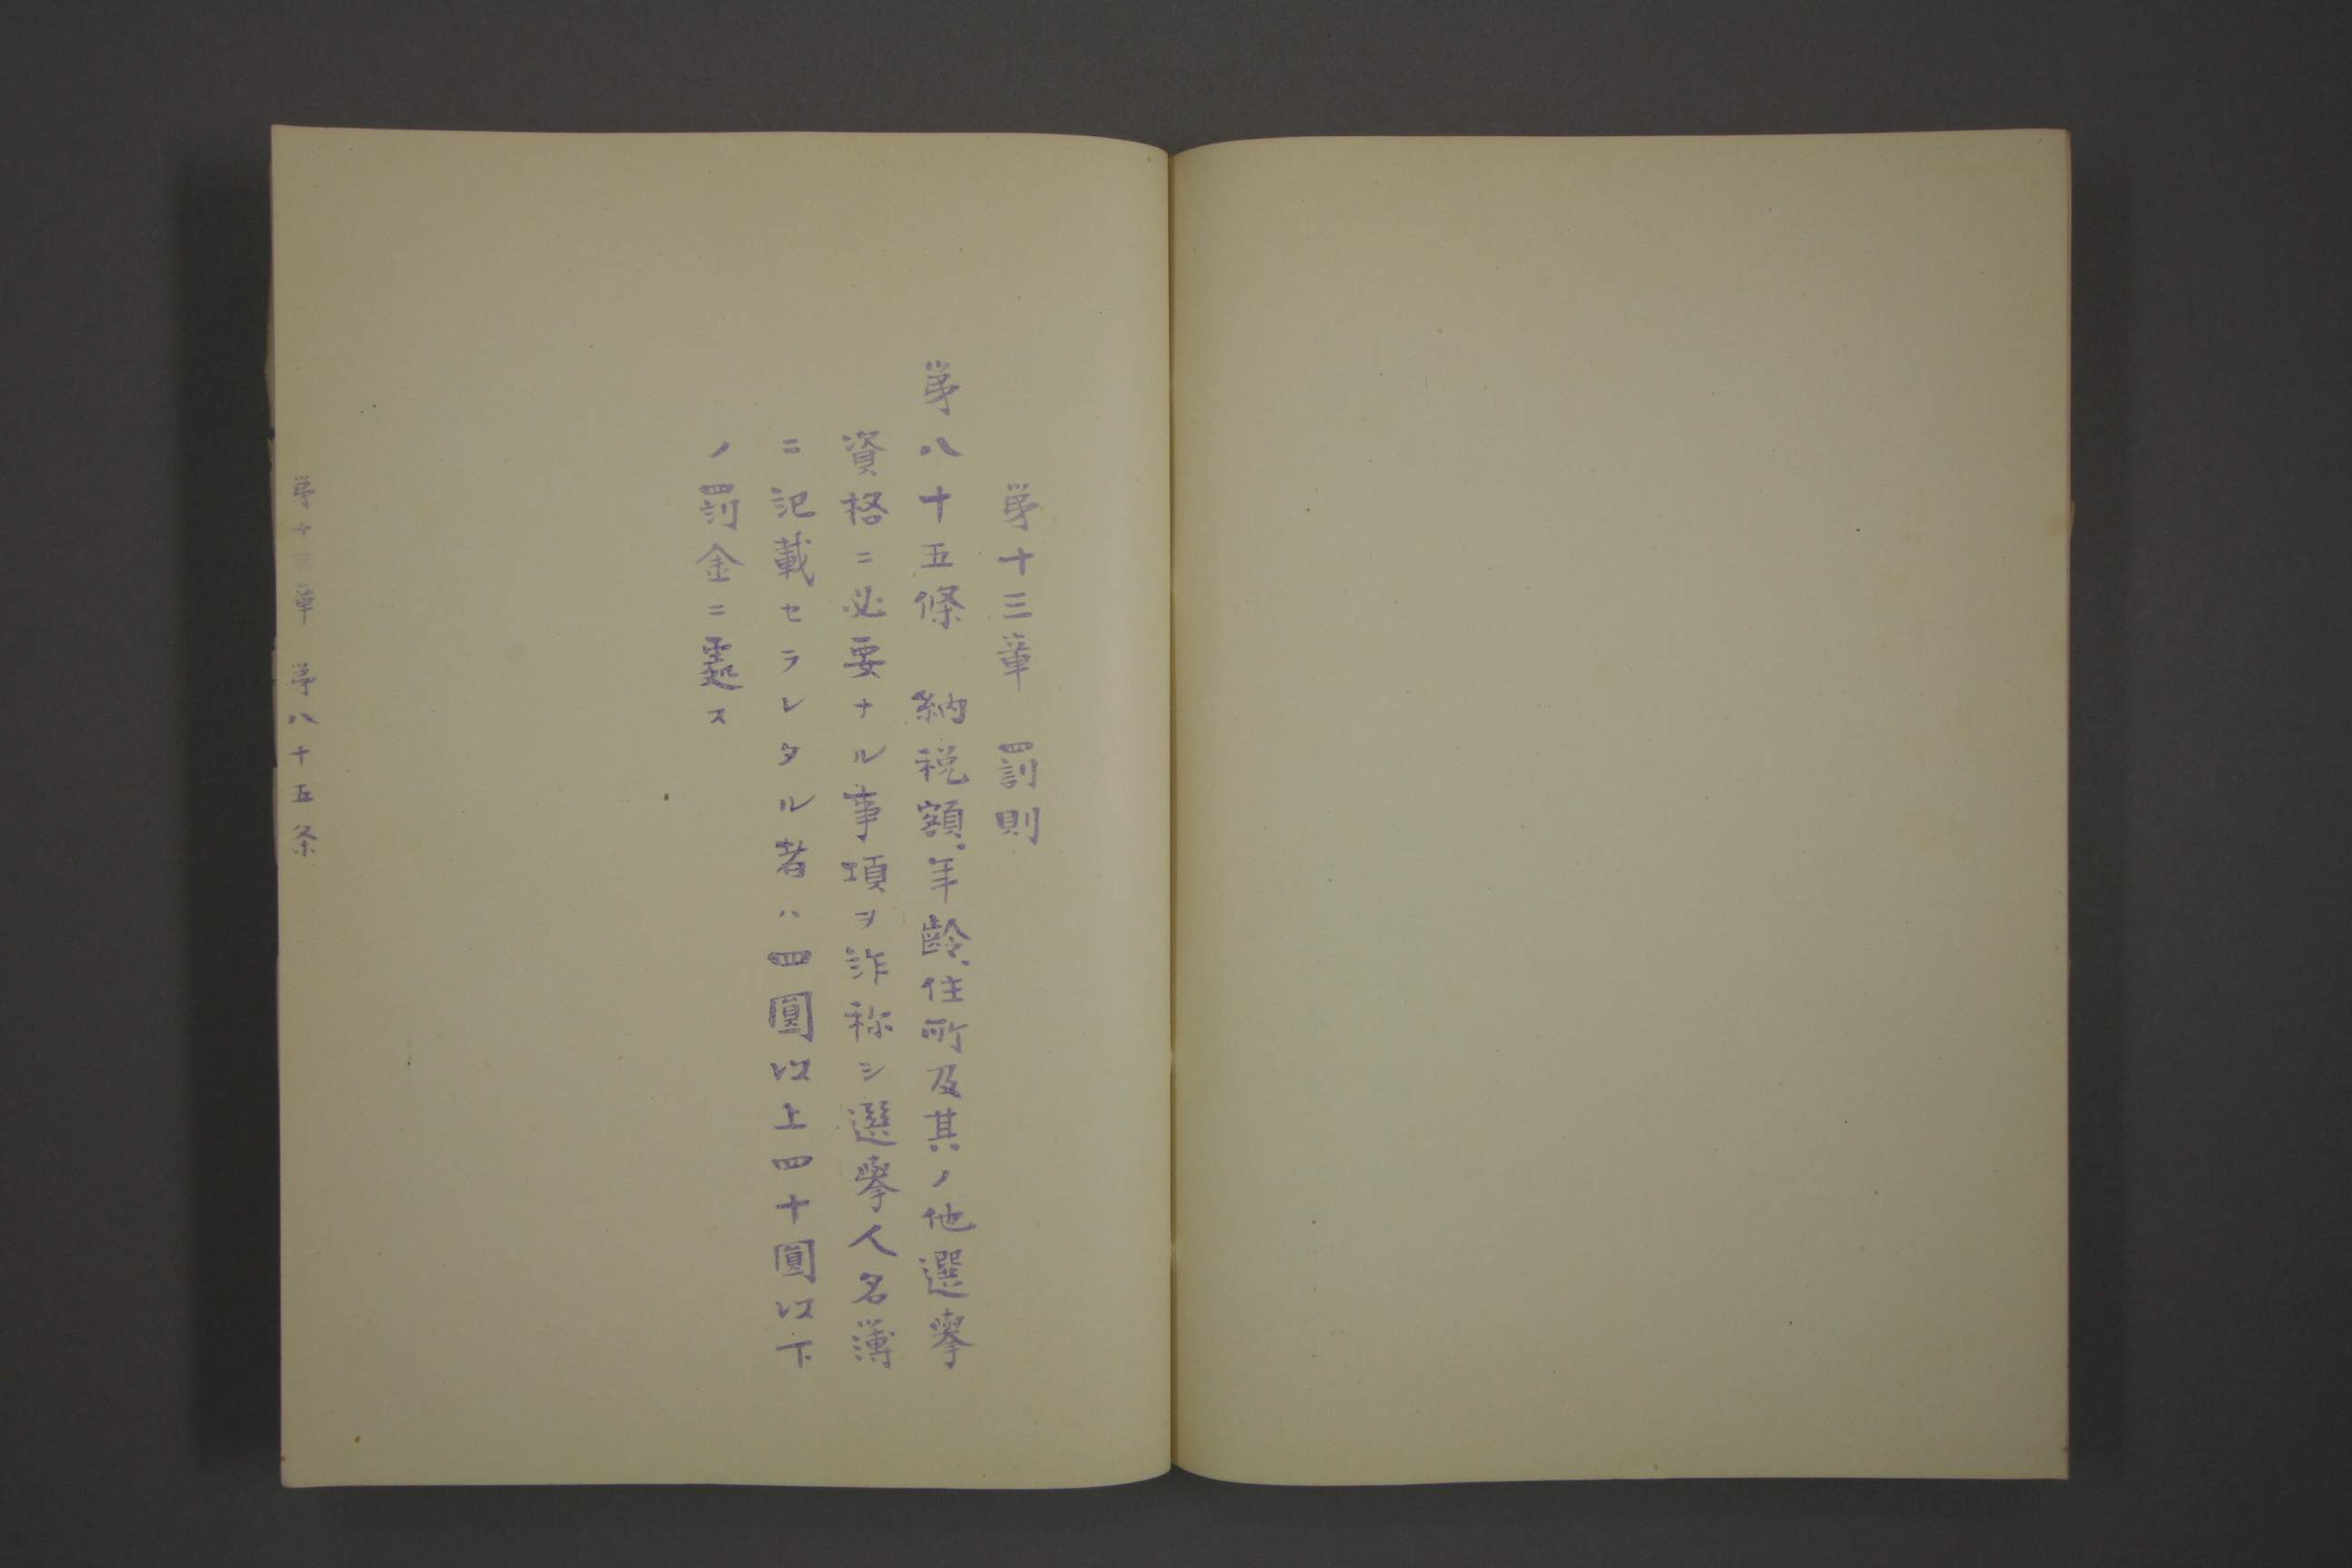 第十三章　罰則
第八十五條　納税額、年齡、住所及其ノ他選擧
資格ニ必要ナル事項ヲ詐称シ選擧人名簿
ニ記載セラレタル者ハ四圓以上四十圓以下
ノ罰金ニ處ス
第十三章　第八十五条